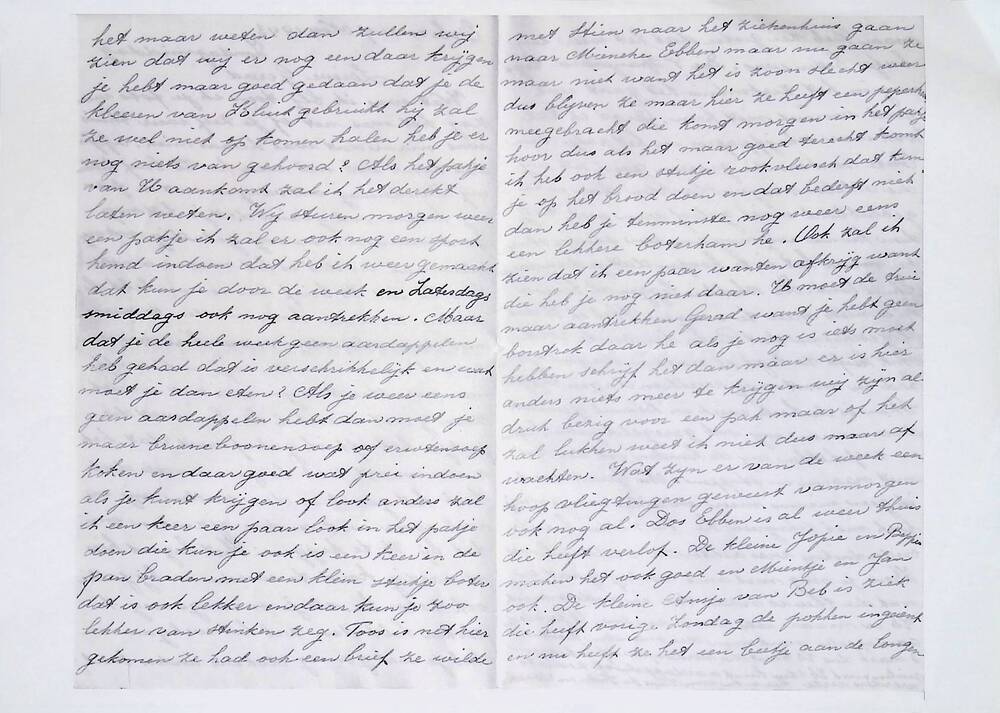 het maar weten dan zullen wij
zien dat wij er nog een daar krijgen
je hebt maar goed gedaan dat je de
kleeren van Kluit gebruikt hij zal
ze wel niet op komen halen heb je er
nog niets van gehoord? Als het pakje
van U aankomt zal ik het derekt
laten weten. Wij sturen morgen weer
een pakje ik zal er ook nog een sport
hemd indoen dat heb ik weer gemaakt
dat kun je door de week en Zatesdags
smiddags ook nog aantrekken. Maar
dat je de heele week geen aardappelen
heb gehad dat is verschrikkelijk en wat
moet je dan eten? Als je weer eens
geen aardappelen hebt dan moet je
maar bruineboonensoep of erwtensoep
koken en daar goed wat prei indoen
als je kunt krijgen of look anders zal
ik een keer een paar look in het pakje
doen die kun je ook is een keer in de
pan braden met een klein stukje boter
dat is ook lekker en daar kun je zoo
lekker van stinken zeg. Toos is net hier
gekomen ze had ook een brief ze wilde
met Stien naar het ziekenhuis gaan
naar Mineke Ebben maar nu gaan ze
maar niet want het is zoon slecht weer
dus blijven ze maar hier ze heeft een
meegebracht die komt morgen in het pakje
hoor dus als het maar goed terecht komt
ik heb ook een stukje rookvleesch dat kun
je op het brood doen en dat bederft niet
dan heb je tenminste nog weer eens
een lekkere boterham he. Ook zal ik
zien dat ik een paar wanten afkrijg want
die heb je nog niet daar. U moet de trui
maar aantrekken Gerad want je hebt geen
borstrok daar he als je nog is iets moet
hebben schrijf het dan maar er is hier
anders niets meer te krijgen wij zijn al
druk bezig voor een pak maar of het
zal lukken weet ik niet dus maar af
wachten. Wat zyn er van de week een
hoop vliegtuigen geweest vanmorgen
ook nog al. Dos Ebben is al weer thuis
die heeft verlof. De kleine Jopie en
maken het ook goed en Mientje en Jan
ook. De kleine Ansje van Beb is ziek
die heeft vorige Zondag de pokken ingeënt
en nu heeft ze het een beetje aan de longen